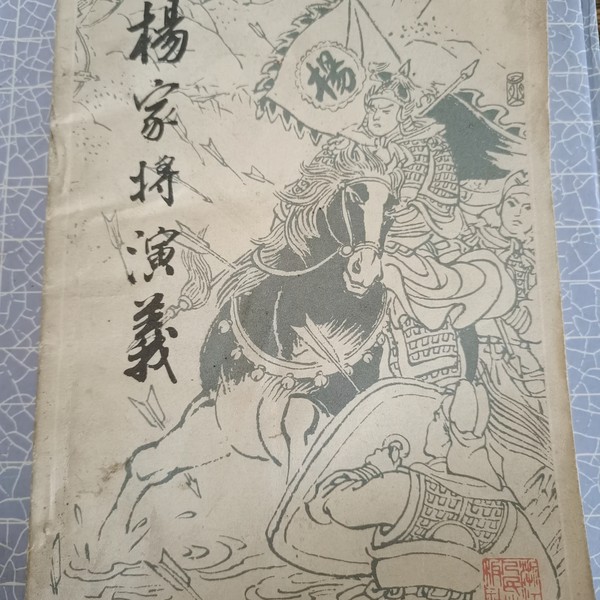 楊家将演義
楊